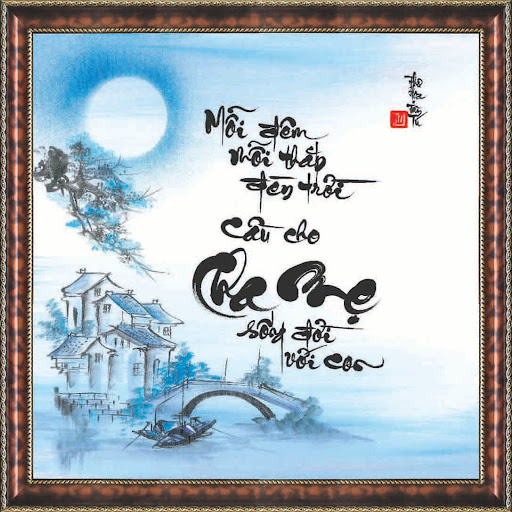 Mỗi đêm
mỗi thắp
đèn trời
cầu cho
Cha Mẹ
sống đời
với con